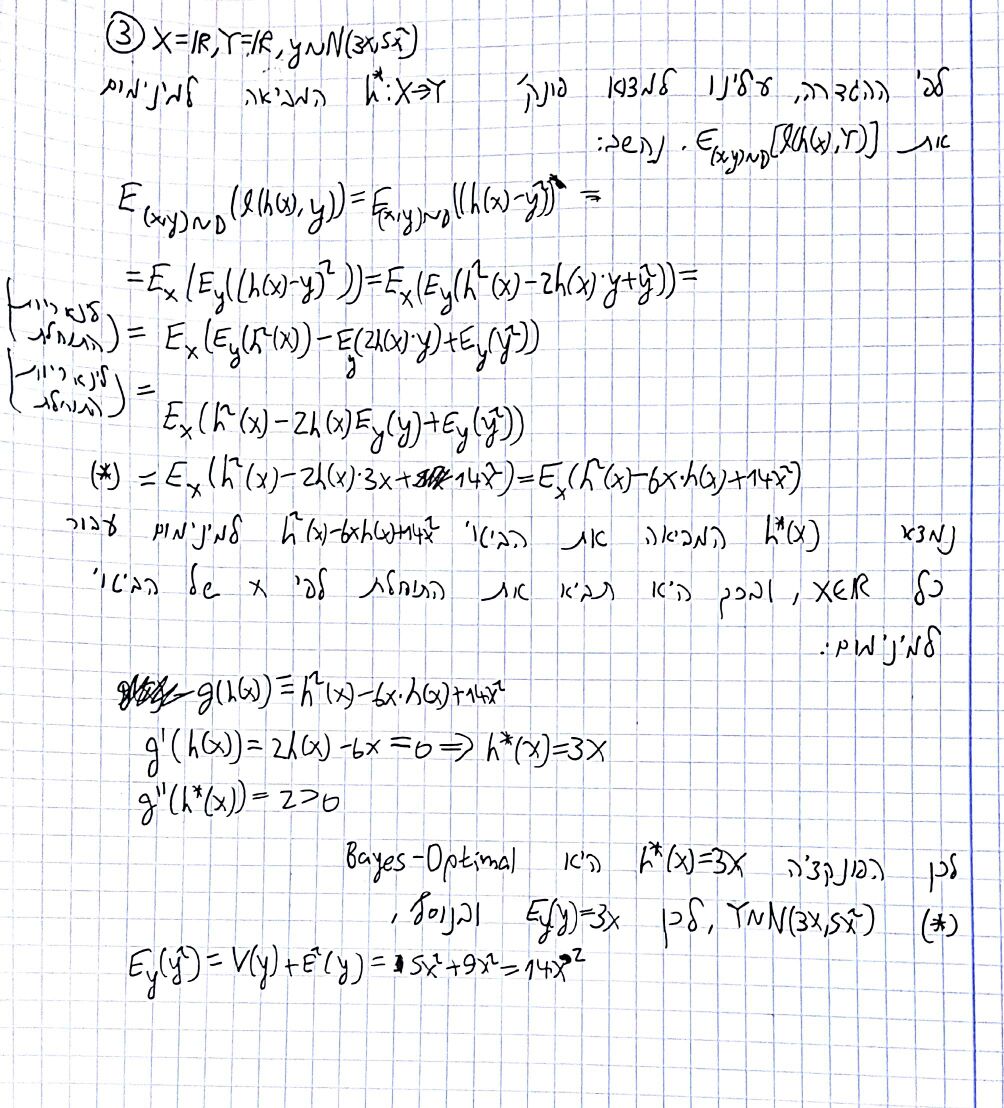 ③ X=ℝ, Y=ℝ, y~N(3x,5x²)
לפי ההגדרה, עלינו למצוא פונק' h*:X→Y המביאה למינימום
את E_(x,y)~D[l(h(x),Y)]. נחשב:
E_(x,y)~D(l(h(x),y))=E_(x,y)~D((h(x)-y)²) =
=E_x(E_y((h(x)-y)²))=E_x(E_y(h²(x)-2h(x)·y+y²))=
(לינאריות התוחלת) = E_x(E_y(h²(x))-E_y(2h(x)·y)+E_y(y²))
(לינאריות התוחלת) = E_x(h²(x)-2h(x)E_y(y)+E_y(y²))
(*) = E_x(h²(x)-2h(x)·3x+14x²)=E_x(h²(x)-6x·h(x)+14x²)
נמצא h*(x) המביאה את הביטוי h²(x)-6xh(x)+14x² למינימום עבור
כל x∈ℝ, ובכך היא תביא את התוחלת לפי x של הביטוי
למינימום:
g(h(x))≡h²(x)-6x·h(x)+14x²
g'(h(x))=2h(x)-6x=0 ⇒ h*(x)=3x
g''(h*(x))=2>0
לכן הפונקציה h*(x)=3x היא Bayes-Optimal
(*) Y~N(3x,5x²), לכן E_y(y)=3x ובנוסף,
E_y(y²)=V(y)+E²(y)=5x²+9x²=14x²